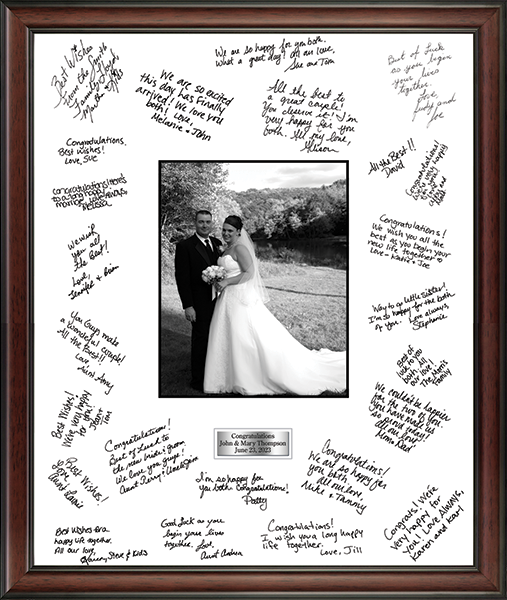 Best Wishes
From the Smith
Family
We are so happy for you both.
What a great day! All our love,
Sue and Tom
Best of Luck
as you begin
your lives
together.
Love,
Judy and
Joe
We are so excited
this day has finally
arrived! We love you
both! Love,
Melanie & John
All the best to
a great couple!
You deserve it! I'm
very happy for you
both. All my love,
Alison
Congratulations,
Best Wishes!
Love, Sue
All the Best!!
David
Congratulations!
Congratulations! Here's
to a long happy
marriage. Love Always,
Melissa
We wish
you all
the Best!
Love,
Jennifer & Brian
Congratulations!
We wish you all the
best as you begin your
new life together
Love - Katie & Joe
Way to go little sister!
I'm so happy for the both
of you. Love always,
Stephanie
You Guys make
a wonderful couple!
All the Best!!
Love
Aunt Amy
Best of
luck to you
both. All
our love!
The Morris
Family
Best Wishes!
We're very happy
for you!
Tom
We couldn't be happier
for the two of you.
You have made us
so proud
all our love
Mom & Dad
Congratulations!
Best of Luck to
the new bride & groom.
We love you guys!
Aunt Perry & Uncle Jim
Congratulations
John & Mary Thompson
June 23, 2023
Best Wishes!
Love
Congratulations!
We are so happy for
you both.
All our love,
Mike & Tammy
I'm so happy for
you both. Congratulations!
Patty
Congrats! We're
very happy for
you! Love Always,
Karen and Karl
Best Wishes for a
happy life together.
All our love,
Steve & Kids
Good Luck as you
begin your lives
together. Love,
Aunt Andrea
Congratulations!
I wish you a long happy
life together.
Love, Jill